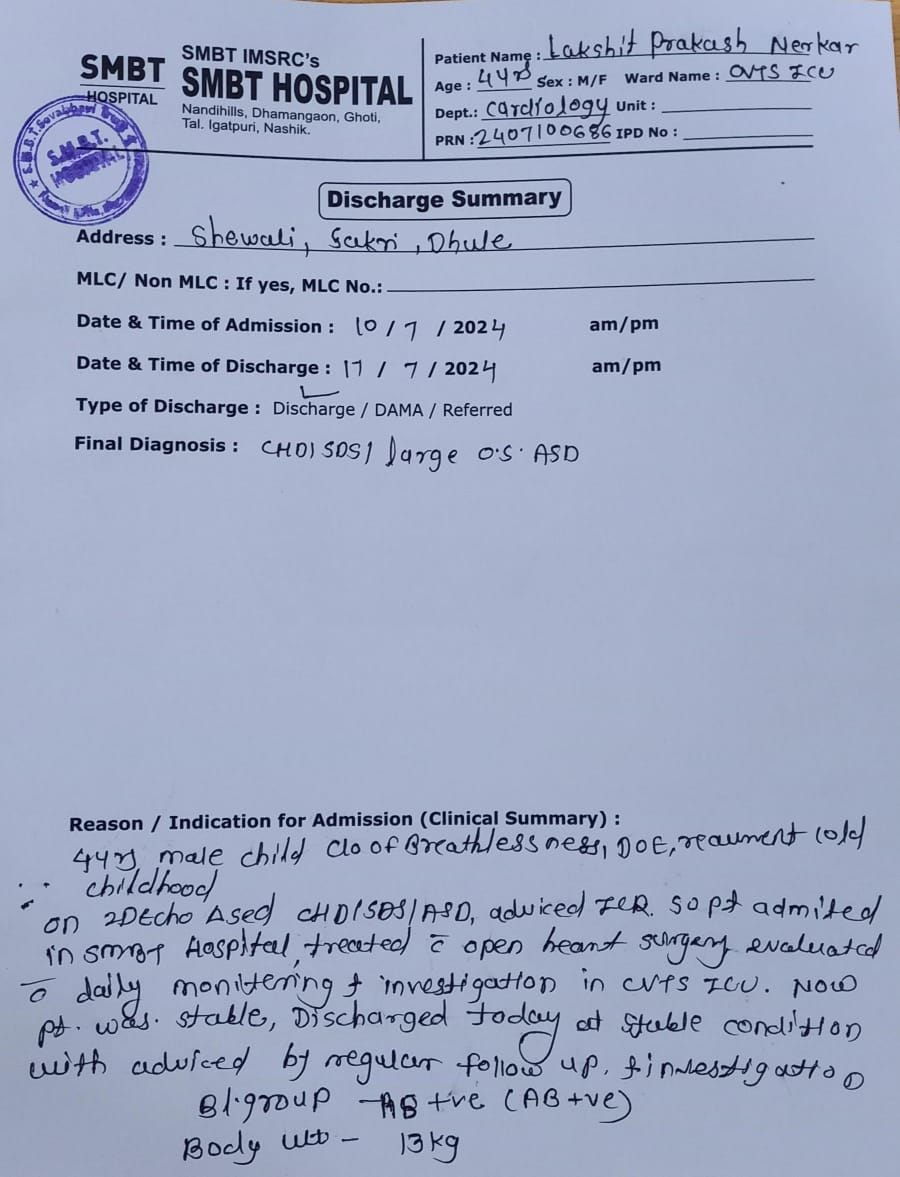 SMBT
HOSPITAL
SMBT IMSRC's
SMBT HOSPITAL
Nandihills, Dhamangaon, Ghoti,
Tal. Igatpuri, Nashik.
Patient Name : Lakshit Prakash Nerkar
Age : 4yrs Sex : M/F Ward Name : CVTS ICU
Dept.: Cardiology Unit :
PRN : 2407100686 IPD No :
S.M.B.T.
HOSPITAL
Discharge Summary
Address : Shewali, Sakri, Dhule
MLC/ Non MLC : If yes, MLC No.:
Date & Time of Admission : 10 / 7 / 2024 am/pm
Date & Time of Discharge : 17 / 7 / 2024 am/pm
Type of Discharge : Discharge / DAMA / Referred
Final Diagnosis : CHD/SDS/ large O.S. ASD
Reason / Indication for Admission (Clinical Summary) :
male child c/o of Breathlessness, DOE, recurrent cold
childhood
on 2DEcho CHD/SDS/ASD, adviced ICR. so pt admited
in SMBT Hospital, treated c open heart surgery evaluated
c daily monitering & investigation in CVTS ICU. Now
pt. was. stable, Discharged today at stable condition
with adviced by regular follow up. & investigation
Bl.group - AB +ve (AB +ve)
Body wt - 13kg